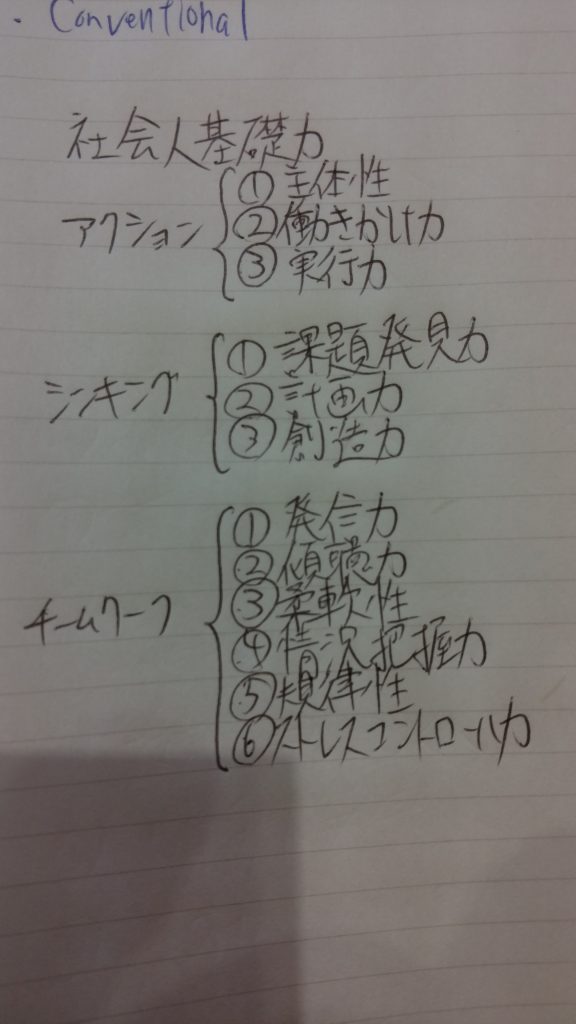 ・Conventional
社会人基礎力
アクション
①主体性
②働きかけ力
③実行力
シンキング
①課題発見力
②計画力
③創造力
チームワーク
①発信力
②傾聴力
③柔軟性
④情況把握力
⑤規律性
⑥ストレスコントロール力